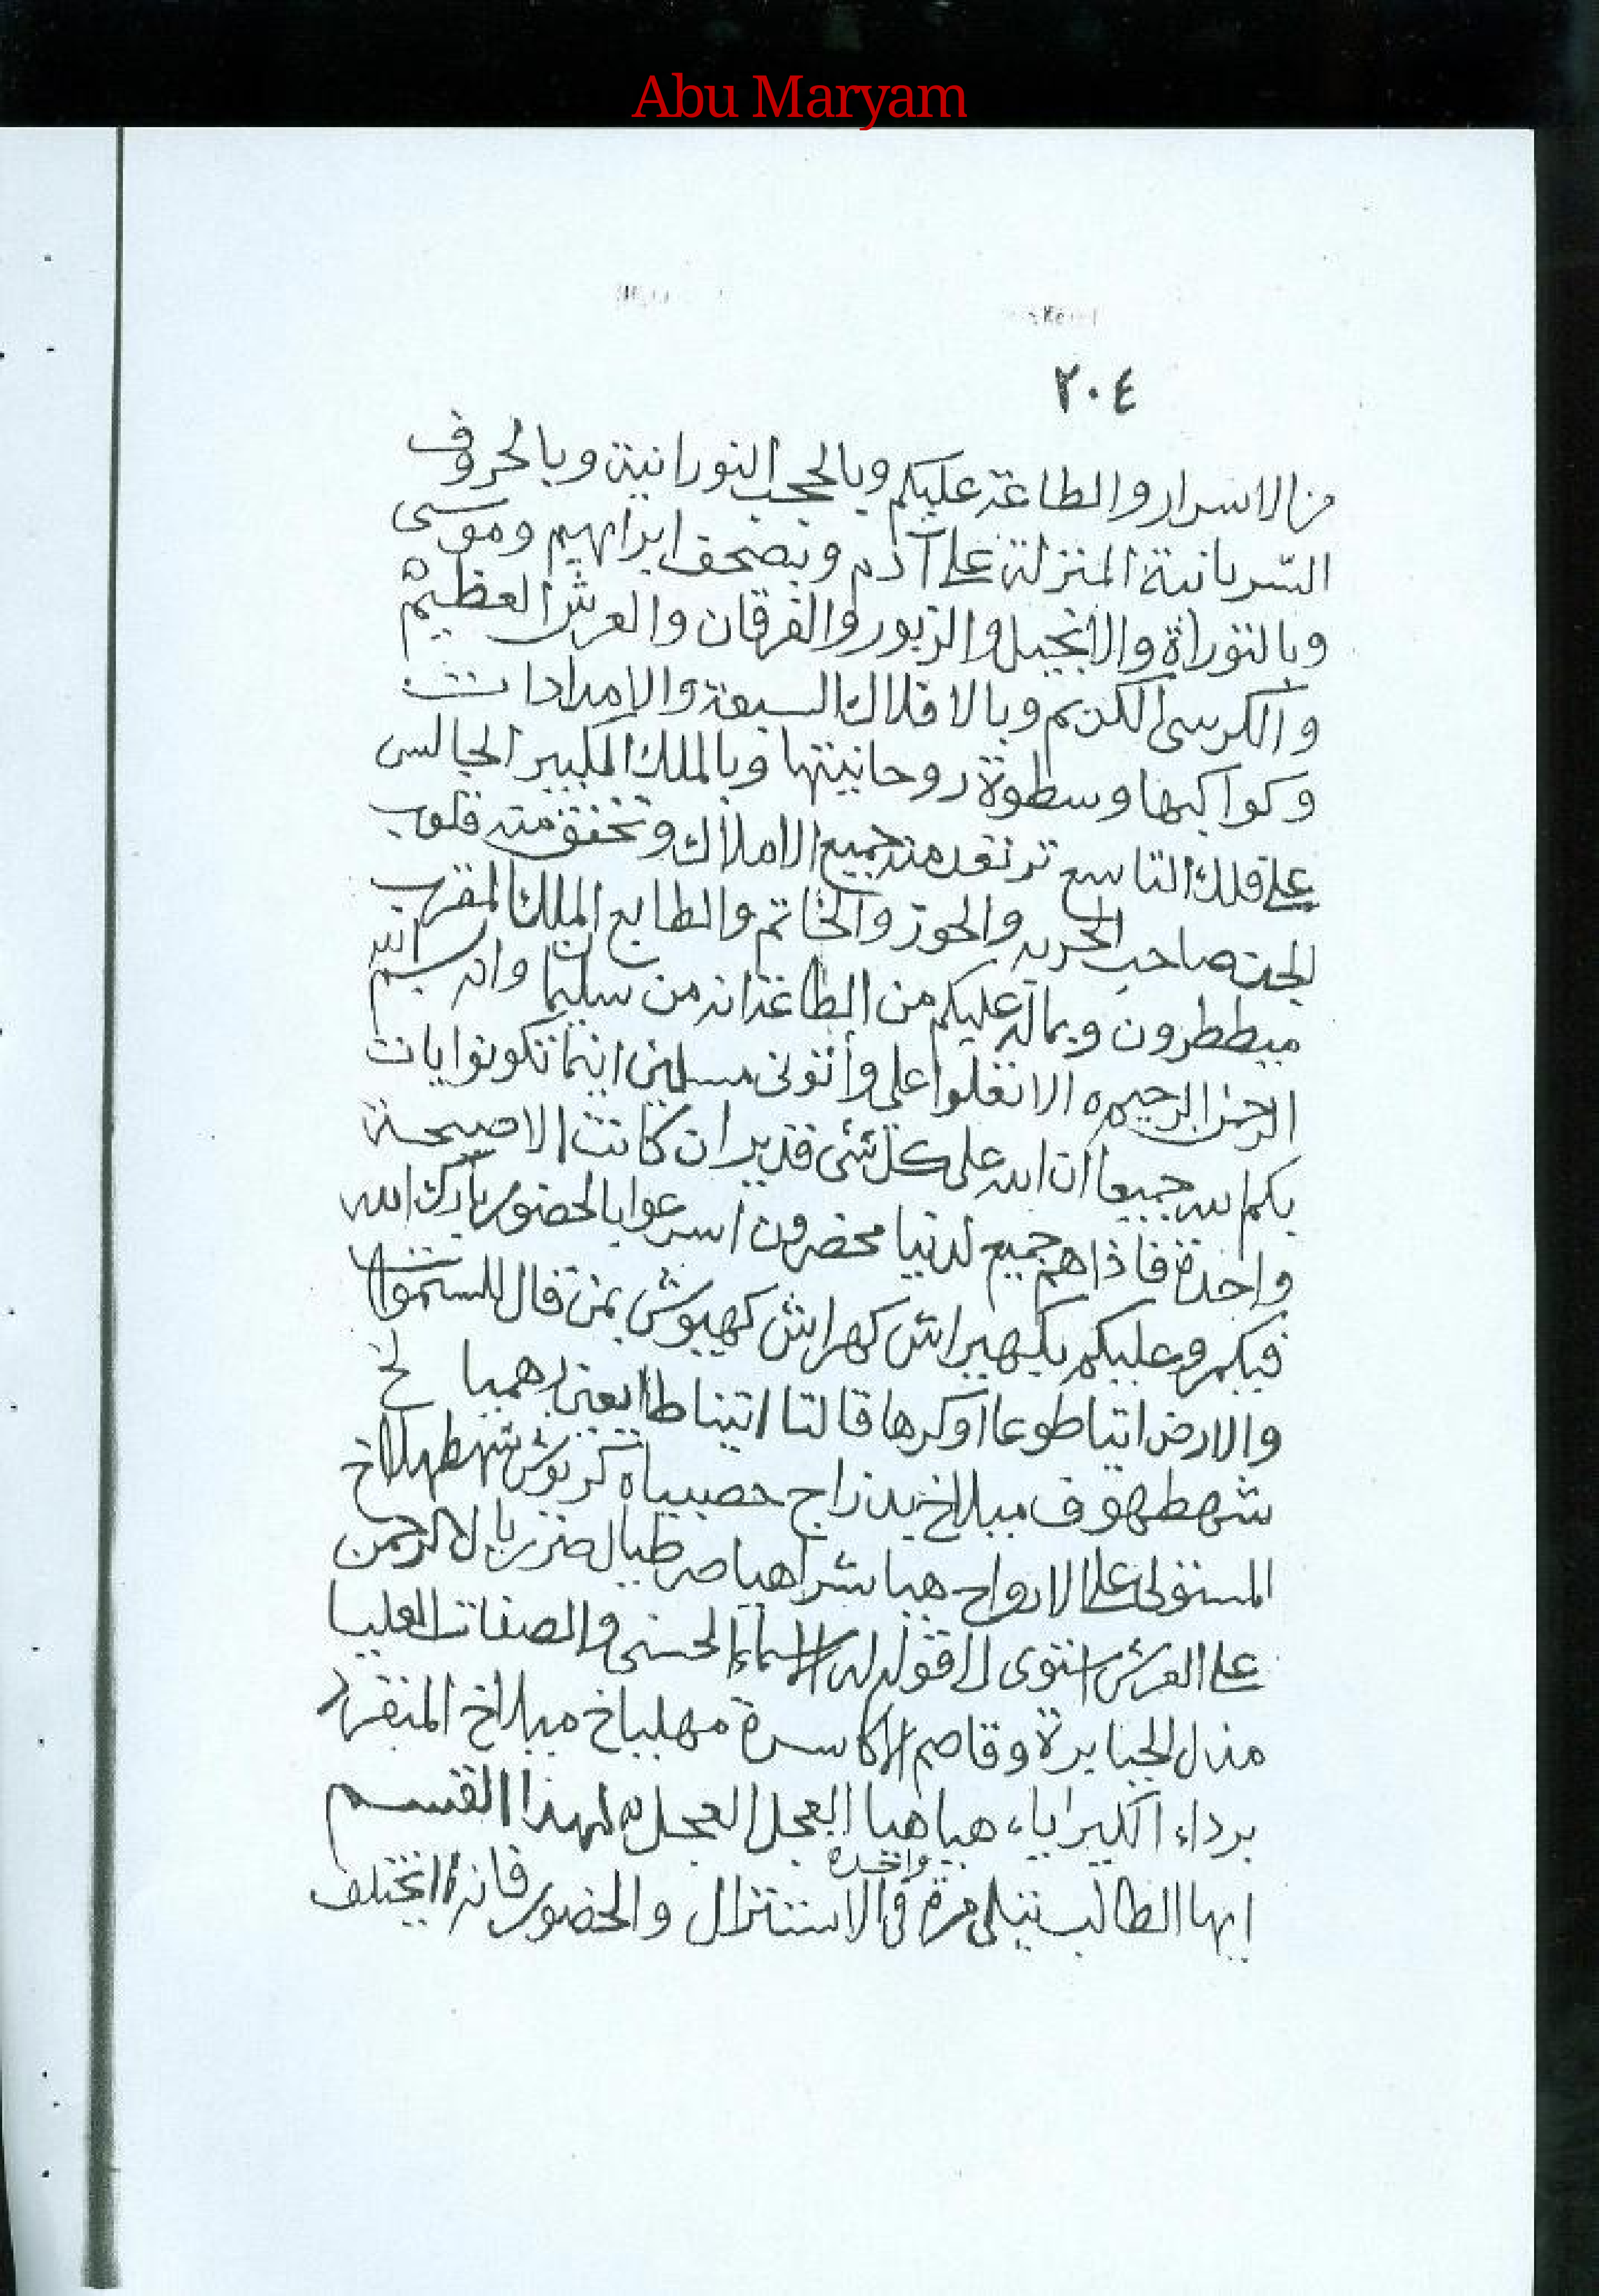 Abu Maryam
٢٠٤
من الاسرار والطاعة عليكم وبالحجب النورانية وبالحروف
السريانية المنزلة على آدم وبصحف ابراهيم وموسى
وبالتوراة والانجيل والزبور والفرقان والعرش العظيم
والكرسى الكريم وبالافلاك السبعة والامدادات
وكواكبها وسطوة روحانيتها وبالملك الكبير الجالس
على فلك التاسع ترتعد منه جميع الاملاك وتخفق منه قلوب
الجن صاحب الحربه والحوز والخاتم والطابع الملك المقرب
ميططرون وبماله عليكم من الطاعة انه من سليمان وانه بسم الله
الرحمن الرحيم ه الا تعلوا على وأتونى مسلمين اينما تكونوا يات
بكم الله جميعا ان الله على كل شئ قدير ان كانت الا صيحة
واحدة فاذا هم جميع لدنيا محضرون اسرعوا بالحضور بارك الله
فيكم وعليكم بكهيراش كهراش كهيوش بمن قال للسموات
والارض اتيا طوعا اوكرها قالتا اتينا طايعين هميا لخ
شهطهوف ميلاخ حصبياه كربوش شهطهلاخ
المستولى على الارواح هيا شراهيا الرحمن
على العرش استوى الى قوله له الاسماء الحسنى والصفات العليا
مذل الجبابرة وقاصم الاكاسرة مهلياخ ميلاخ المنفرد
برداء الكبرياء هيا هيا العجل العجل ه لهذا القسم
ايها الطالب يتلى مرة واحدة فى الاستنزال والحضور فانه لا يختلف